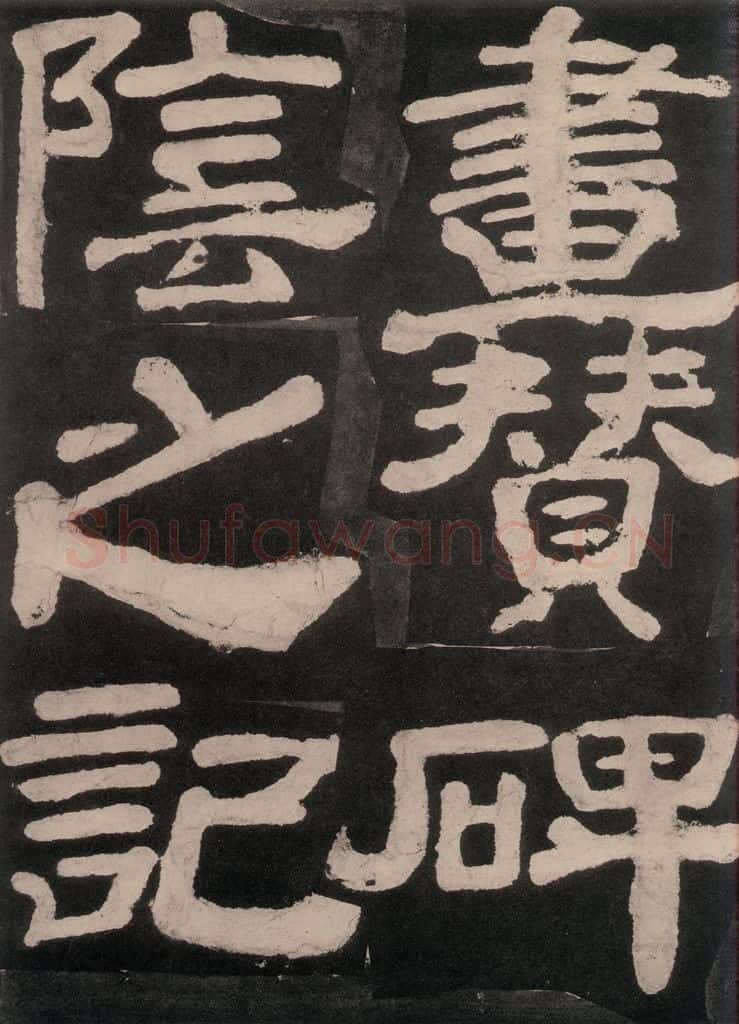 畫贊碑
陰之記
Shufawang.CN